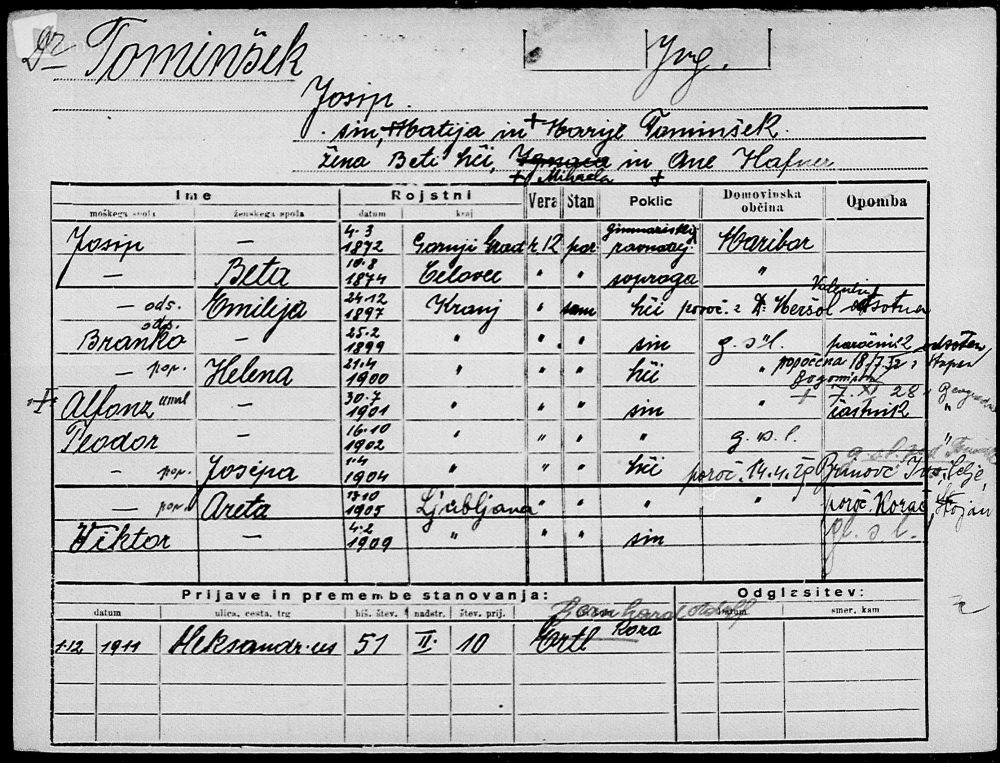 Dr Tominšek
Jug.
Josip.
sin, Matija in + Marije Tominšek.
žena Beti hči, Ignaca in Ane Hafner
+ Mihaela +
Ime Rojstni Vera Stan Poklic Domovinska občina Opomba
moškega spola ženskega spola datum kraj
Josip — 4.3 1872 Gornji Grad r.k. por gimnazijski ravnatelj Maribor
— Beta 10.8 1874 Celovec " " soproga "
— ods. Emilija 24.12 1897 Kranj " sam hči poroč. z Dr. Meršol Valentin odsotna
Branko ods. — 25.2 1899 " " " sin g. s. l. poročnik odsoten
— por. Helena 21.4 1900 " " " hči " poročena 18/7.32 Bogomira
+ Alfonz — 30.7 1901 " " " sin " + 7. XI 28 Beograd
častnik "
Teodor — 16.10 1902 " " " " g. s. l. "
— por. Josepa 1.4 1904 " " " hči poroč. 14.4.29 Celje,
— por. Areta 17.10 1905 Ljubljana " " " " poroč. Korać, Stojan
Viktor — 4.2 1909 " " " sin gl. s. l.
Prijave in premembe stanovanja: Odglasitev:
datum ulica, cesta, trg hiš. štev. nadstr. štev. prij. datum smer, kam
Bernhard Adolf
1.12 1911 Aleksandr. ces 51 II. 10 Ertl Kora